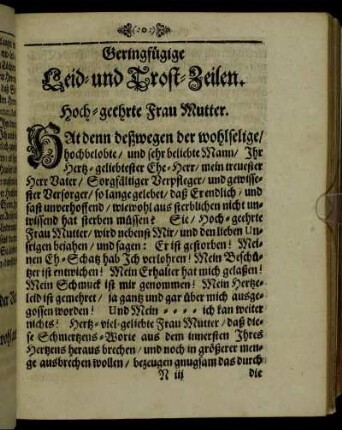 (:0:)
Geringfügige
Leid- und Trost-Zeilen.
Hoch-geehrte Frau Mutter.
HAt denn deßwegen der wohlselige/
hochbelobte/ und sehr beliebte Mann/ Ihr
Hertz-geliebtester Ehe-Herr/ mein treuester
Herr Vater/ Sorgfältiger Verpfleger/ und gewisse-
ster Versorger/ so lange gelebet/ daß Er endlich/ und
fast unverhoffend/ wiewohl aus sterblichen nicht un-
wissend hat sterben müssen? Sie/ Hoch-geehrte
Frau Mutter/ wird nebenst Mir/ und den lieben Un-
serigen bejahen/ und sagen: Er ist gestorben! Mei-
nen Eh-Schatz hab Ich verlohren! Mein Beschü-
tzer ist entwichen! Mein Erhalter hat mich gelaßen!
Mein Schmuck ist mir genommen! Mein Hertze-
leid ist gemehret/ ja gantz und gar über mich ausge-
gossen worden! Und Mein - - - - ich kan weiter
nichts! Hertz-viel-geliebte Frau Mutter/ daß die-
se Schmertzens-Worte aus dem innersten Ihres
Hertzens heraus brechen/ und noch in größerer men-
ge ausbrechen wollen/ bezeugen gnugsam das durch
N iij die